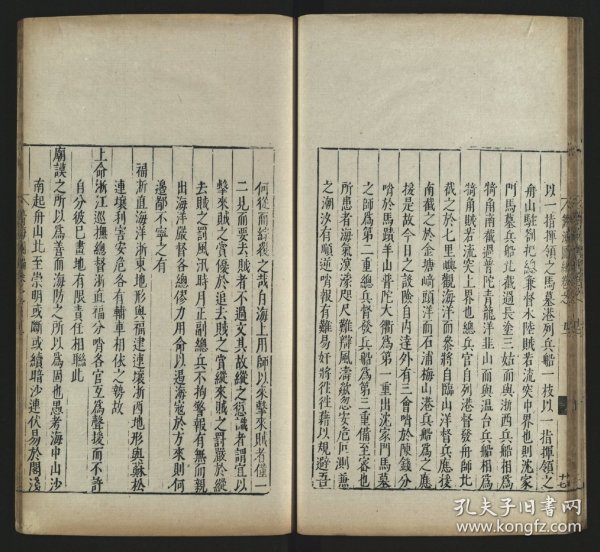 以一指揮領之馬墓港列兵船一枝以一指揮領之
舟山駐劄把總兼督水陸賊若流突中界也則沈家
門馬墓兵船北截過長塗三姑而與浙西兵船相爲
犄角南截過普陀青龍洋韭山而與温台兵船相爲
犄角賊若流突上界也總兵官自列港督發舟師北
截之於七里嶼觀海洋而叅將自臨山洋督兵應援
南截之於金塘崎頭洋而石浦梅山港兵船爲之應
援是故今日之設險自内達外有三會哨於陳錢分
哨於馬蹟羊山普陀大衢爲第一重出沈家門馬墓
之師爲第二重總兵督發兵船爲第三重備至密也
所患者海氣溟濛咫尺難辯風濤欻忽安危叵測兼
之潮汐有順逆哨報有難易奸將徃徃藉以規避吾
何從而綜覈之哉自海上用師以來擊來賊者僅一
二見而要去賊者不過文其故縱之愆識者謂宜以
擊來賊之賞優於追去賊之賞縱來賊之罸嚴於縱
去賊之罸風汛時月正副總兵不拘警報有無而親
出海洋嚴督各總僇力用命以遏海寇於方來則何
邊鄙不寧之有
福浙直海洋浙東地形與福建連壤浙西地形與蘇松
連壤利害安危各有輔車相依之勢故
上命浙江巡撫總督浙直福分哨各官互爲聲援而不許
自分彼巳畫地有限責任相聯此
廟謨之所以爲善而海防之所以爲固也愚考海中山沙
南起舟山北至崇明或斷或續暗沙連伏易於閣淺
孔夫子旧书网
www.kongfz.com